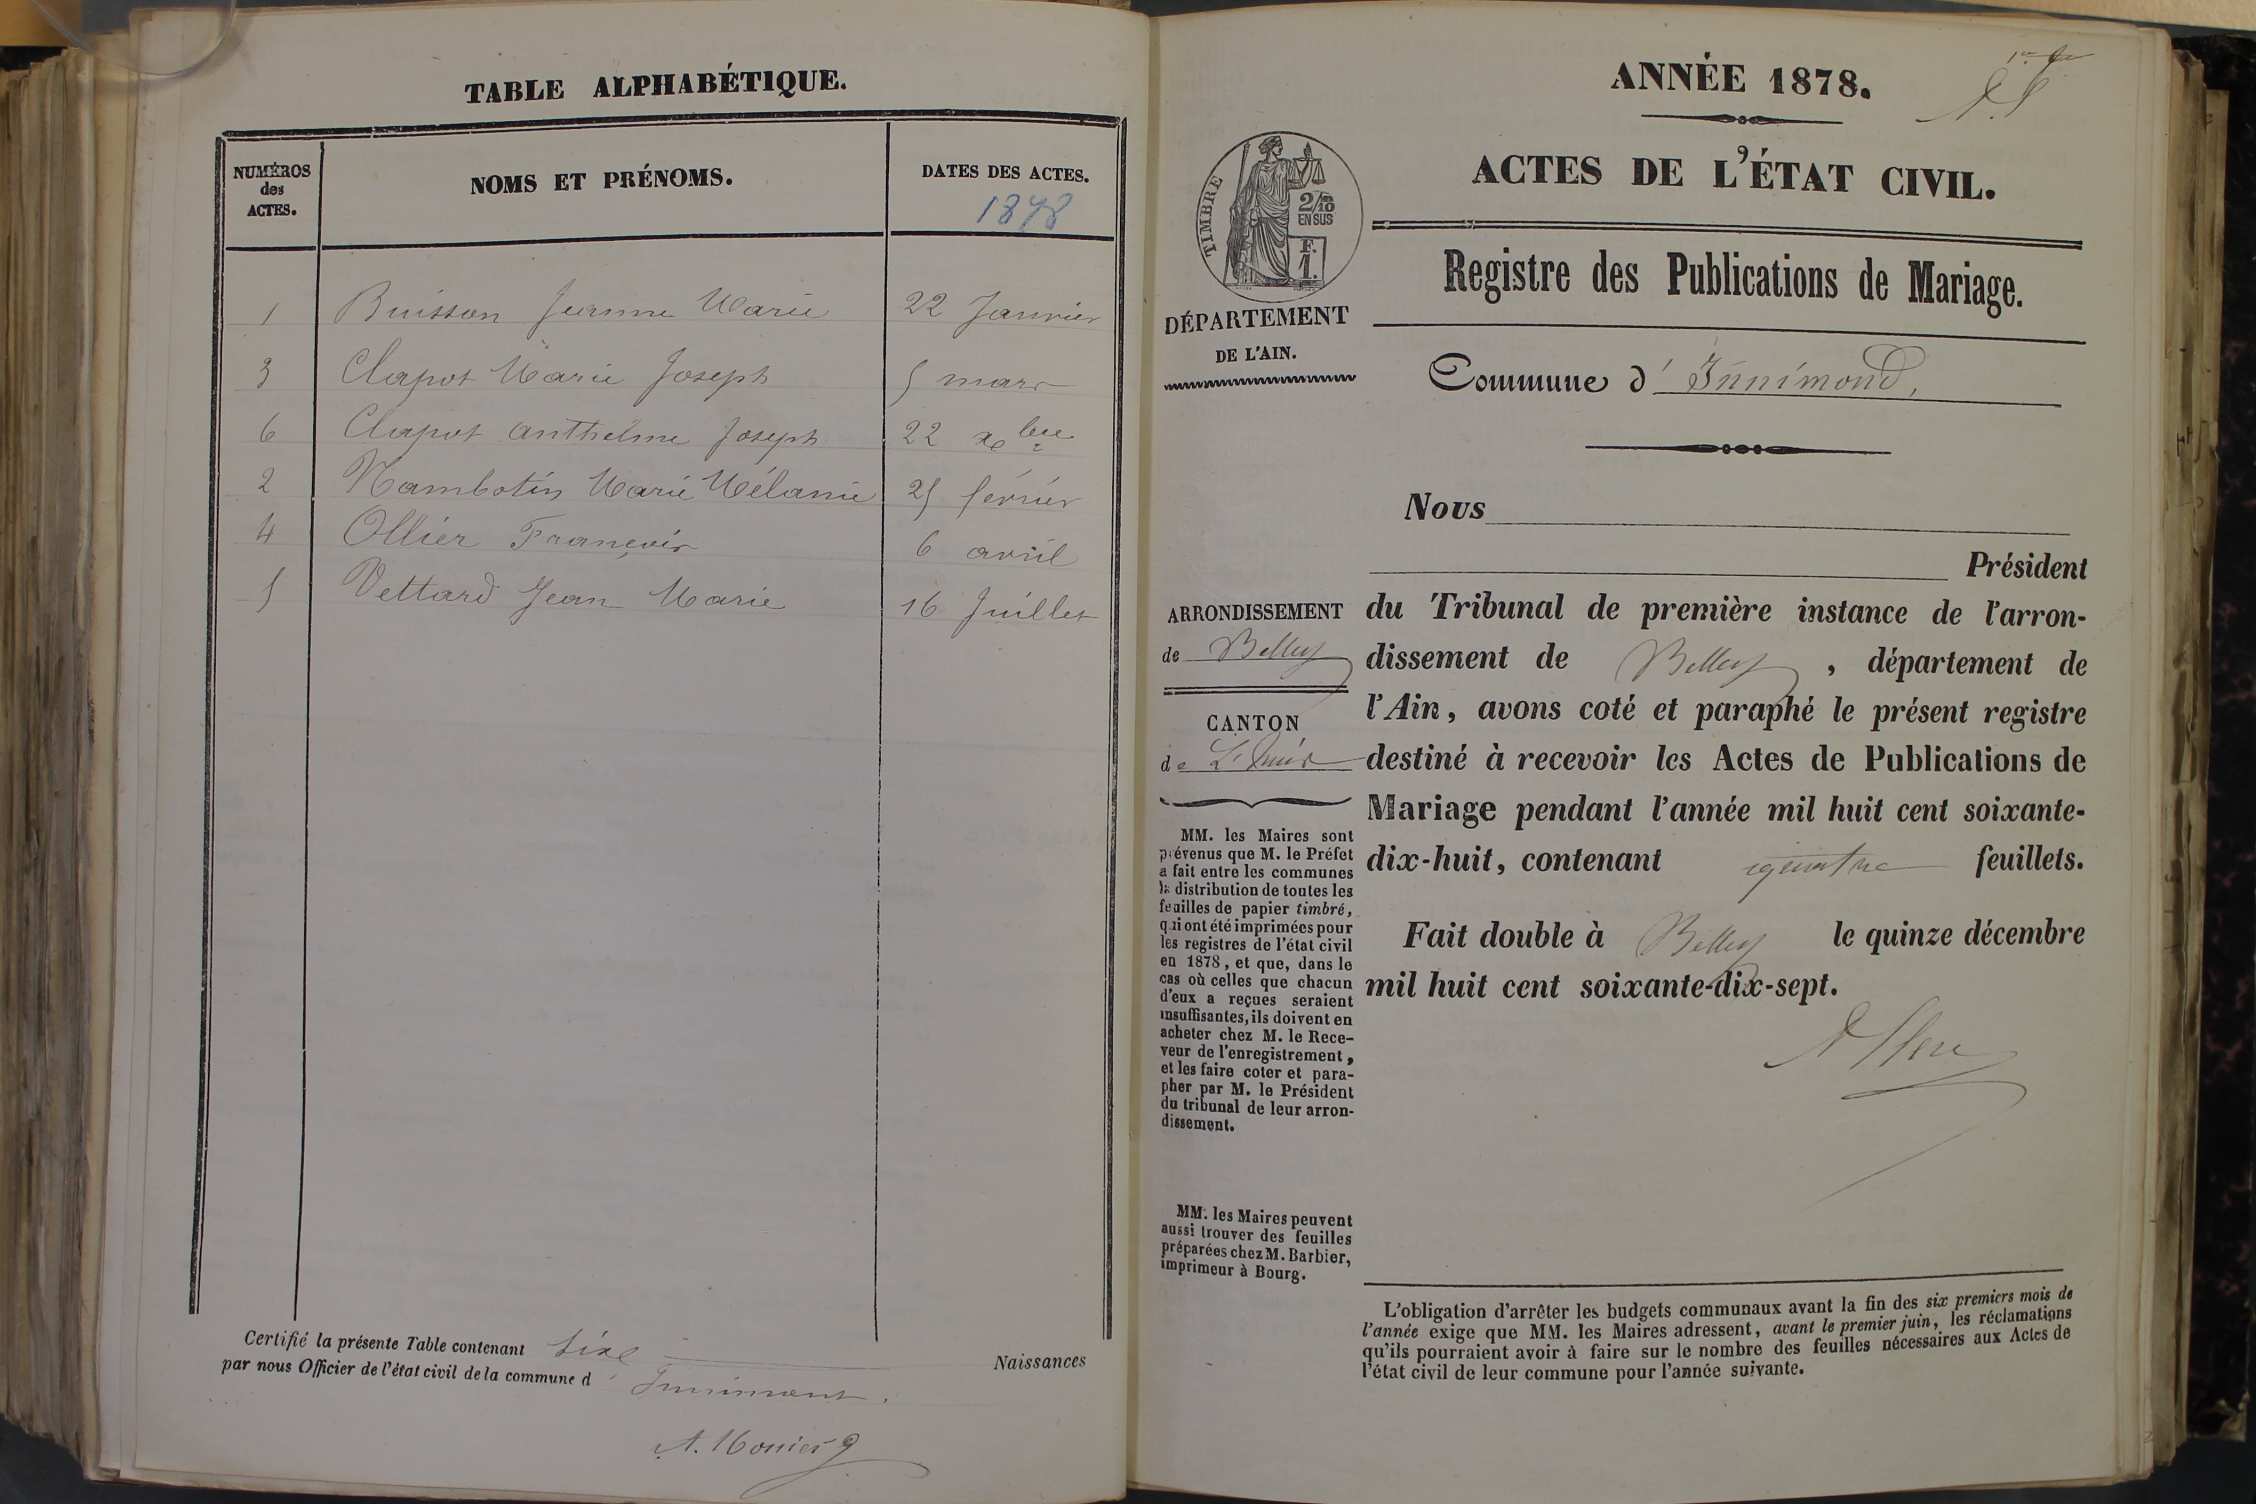 TABLE ALPHABÉTIQUE.
NUMÉROS
des
ACTES.
NOMS ET PRÉNOMS.
DATES DES ACTES.
1878
1 Buisson Jeanne Marie 22 Janvier
3 Clapot Marie Joseph 5 mars
6 Clapot Anthelme Joseph 22 xbre
2 Nambotin Marie Mélanie 25 février
4 Ollier François 6 avril
5 Vettard Jean Marie 16 Juillet
Certifié la présente Table contenant six Naissances
par nous Officier de l'état civil de la commune d'Innimont.
A. Monier
ANNÉE 1878.
ACTES DE L'ÉTAT CIVIL.
TIMBRE
2/10
EN SUS
F.
1.
Registre des Publications de Mariage.
DÉPARTEMENT
DE L'AIN.
Commune d'Innimond,
Nous
Président
ARRONDISSEMENT
de Belley
CANTON
de
MM. les Maires sont
prévenus que M. le Préfet
a fait entre les communes
la distribution de toutes les
feuilles de papier timbré,
qui ont été imprimées pour
les registres de l'état civil
en 1878, et que, dans le
cas où celles que chacun
d'eux a reçues seraient
insuffisantes, ils doivent en
acheter chez M. le Rece-
veur de l'enregistrement,
et les faire coter et para-
pher par M. le Président
du tribunal de leur arron-
dissement.
MM. les Maires peuvent
aussi trouver des feuilles
préparées chez M. Barbier,
imprimeur à Bourg.
du Tribunal de première instance de l'arron-
dissement de Belley, département de
l'Ain, avons coté et paraphé le présent registre
destiné à recevoir les Actes de Publications de
Mariage pendant l'année mil huit cent soixante-
dix-huit, contenant quatre feuillets.
Fait double à Belley le quinze décembre
mil huit cent soixante-dix-sept.
L'obligation d'arrêter les budgets communaux avant la fin des six premiers mois de
l'année exige que MM. les Maires adressent, avant le premier juin, les réclamations
qu'ils pourraient avoir à faire sur le nombre des feuilles nécessaires aux Actes de
l'état civil de leur commune pour l'année suivante.